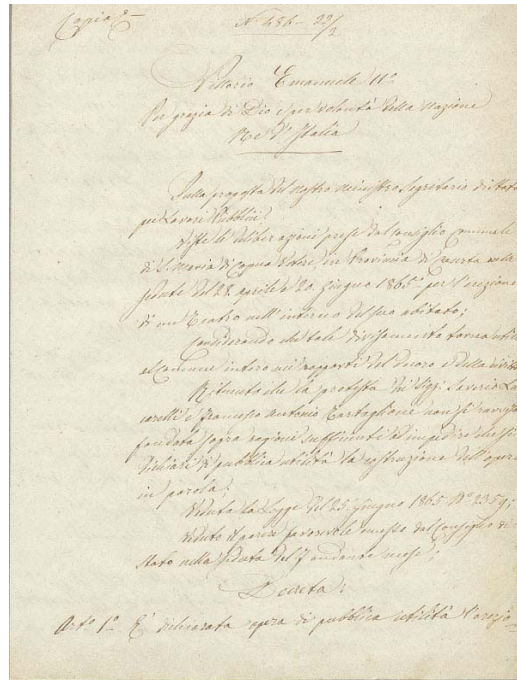 Copia
N° 486 - 22/2
Vittorio Emanuele II°
Per grazia di Dio e per volontà della Nazione
Re d'Italia
Sulla proposta del Nostro Ministro Segretario di Stato
pei Lavori Pubblici;
Viste le deliberazioni prese dal Consiglio Comunale
di S. Maria di Capua Vetere, in Provincia di Caserta nelle
sedute del 28 aprile e 20 giugno 1865 per l'erezione
di un Teatro nell'interno del suo abitato;
Considerando che tale divisamento torna utile
al Comune intero nei rapporti del decoro e della civiltà
Ritenuto che la protesta dei Sigg. Saverio
e Francesco Antonio Cartaglione non si ravvisa
fondata sopra ragioni sufficienti ad impedire che si
dichiari di pubblica utilità la costruzione dell'opera
in parola;
Veduta la Legge del 25 giugno 1865 N° 2359;
Veduto il parere favorevole emesso dal Consiglio di
Stato nella seduta del 7 andante mese;
Decreta:
Art° 1° È dichiarata opera di pubblica utilità